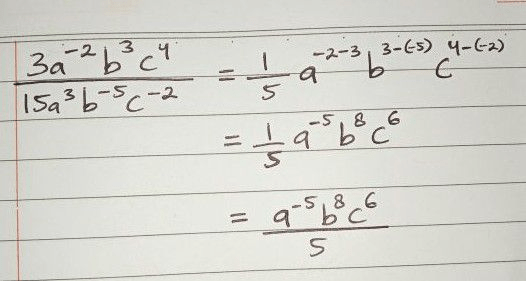 3a⁻²b³c⁴ / 15a³b⁻⁵c⁻² = 1/5 a⁻²⁻³ b³⁻⁽⁻⁵⁾ c⁴⁻⁽⁻²⁾
= 1/5 a⁻⁵b⁸c⁶
= a⁻⁵b⁸c⁶ / 5